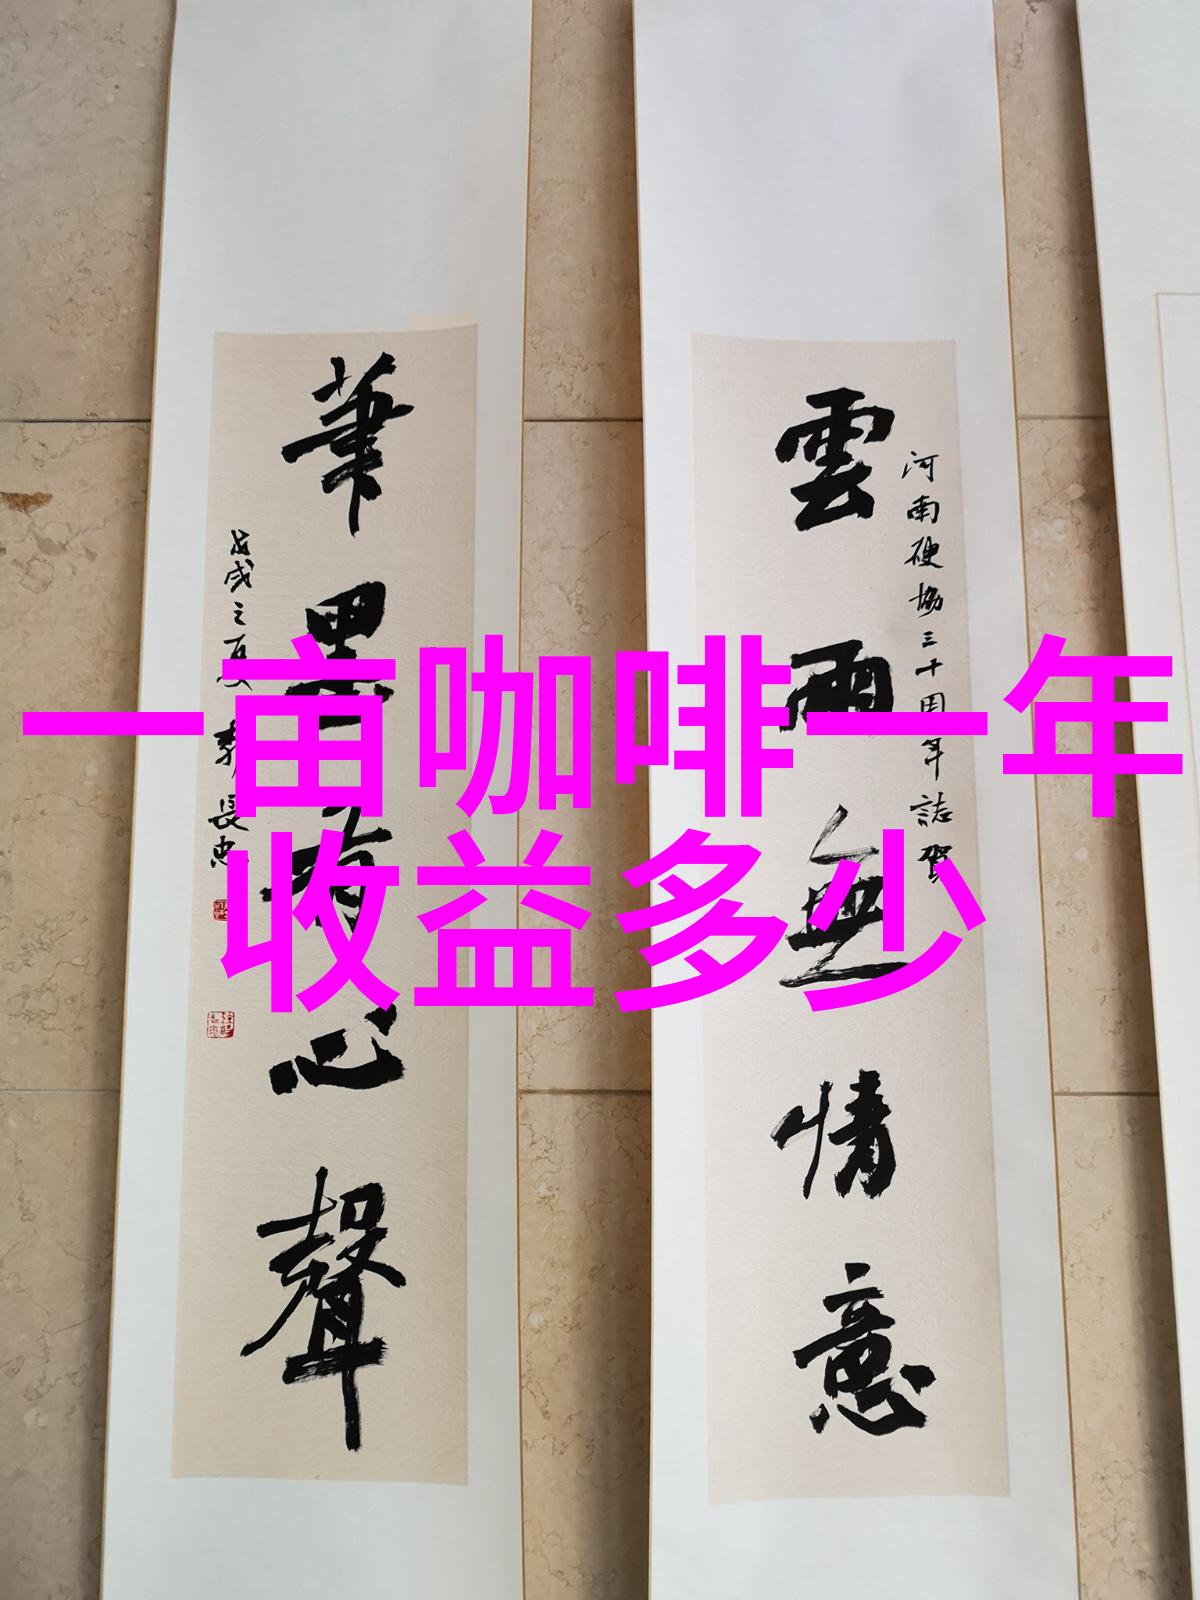 一亩咖啡一年
收益多少
雲雨無情意
河南硬協三十周年誌賀
筆墨有心聲
戊戌之夏 長忠